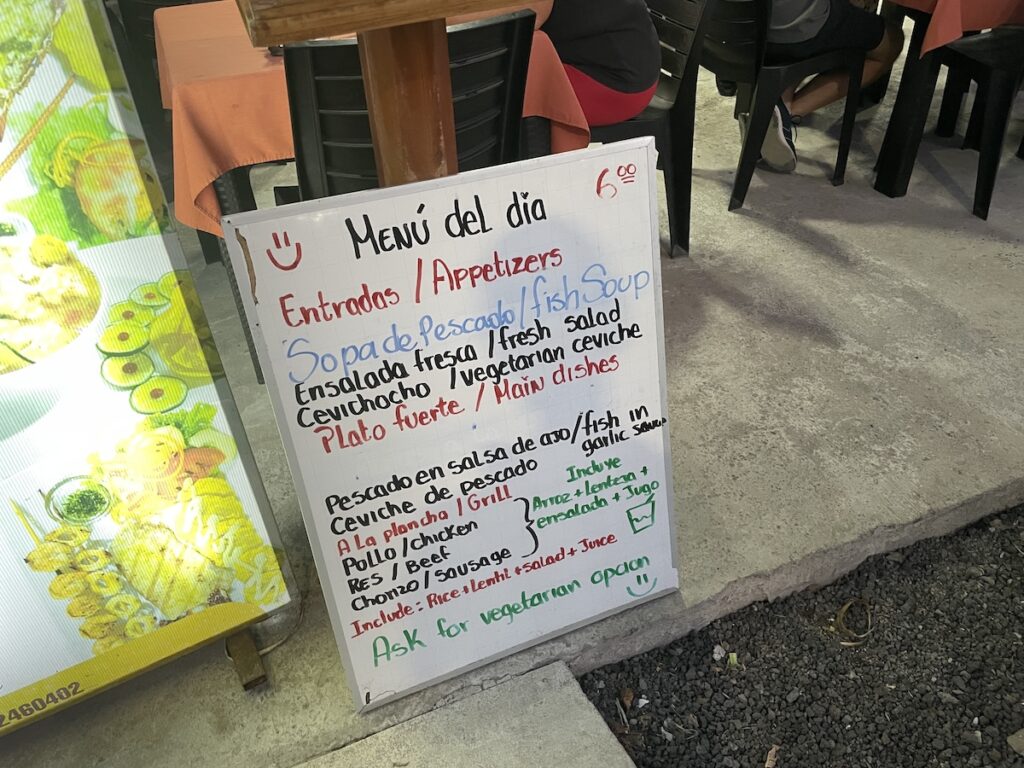 Menú del dia
6.00
Entradas / Appetizers
Sopa de Pescado / fish Soup
Ensalada fresca / fresh salad
Cevichocho / vegetarian ceviche
Plato fuerte / Main dishes
Pescado en salsa de ajo / fish in
garlic sauce
Ceviche de pescado
A La plancha / Grill
Pollo / chicken
Res / Beef
Chorizo / sausage
Incluye
Arroz + Lenteja +
ensalada + Jugo
Include = Rice + Lenti + salad + Juice
Ask for vegetarian opcion
2460402